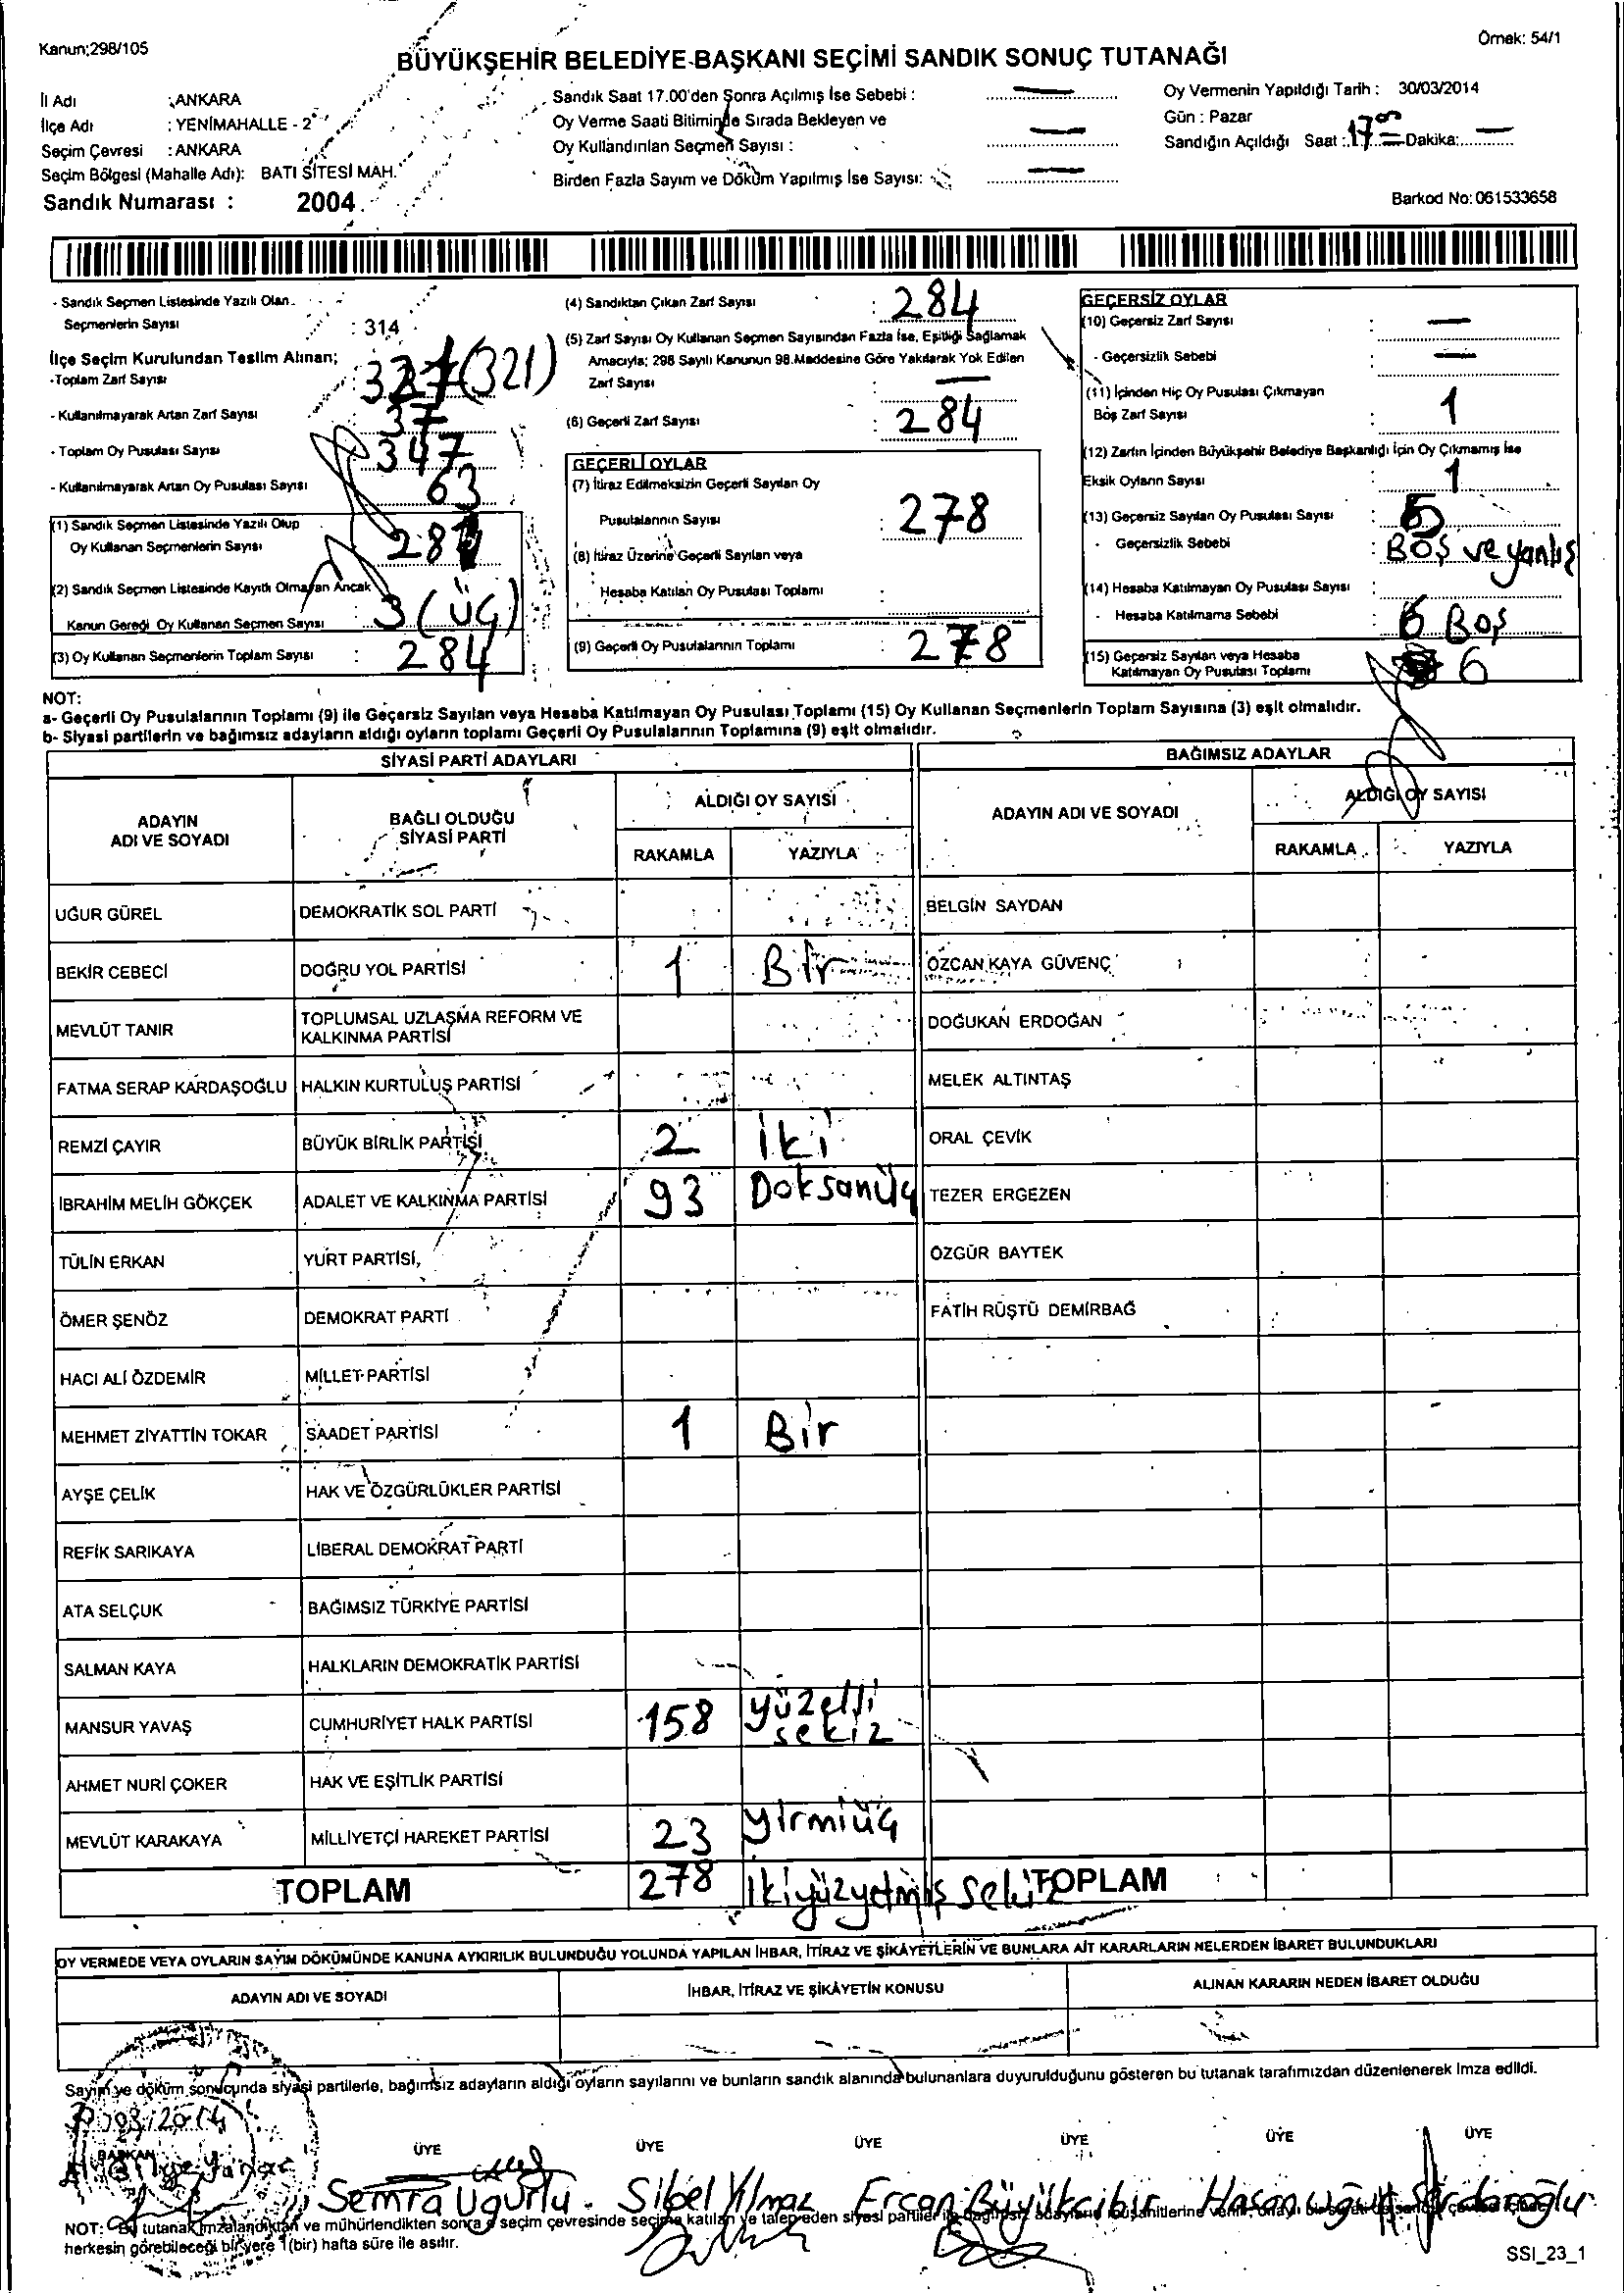 Kanun;298/105
Örnek: 54/1
BÜYÜKŞEHİR BELEDİYE BAŞKANI SEÇİMİ SANDIK SONUÇ TUTANAĞI
İl Adı :ANKARA
İlçe Adı : YENİMAHALLE - 2
Seçim Çevresi : ANKARA
Seçim Bölgesi (Mahalle Adı): BATI SİTESİ MAH.
Sandık Numarası : 2004
Sandık Saat 17.00'den Sonra Açılmış İse Sebebi :
Oy Verme Saati Bitiminde Sırada Bekleyen ve
Oy Kullandırılan Seçmen Sayısı :
Birden Fazla Sayım ve Döküm Yapılmış İse Sayısı:
Oy Vermenin Yapıldığı Tarih : 30/03/2014
Gün : Pazar
Sandığın Açıldığı Saat : 17 00 Dakika:
Barkod No: 061533658
- Sandık Seçmen Listesinde Yazılı Olan
Seçmenlerin Sayısı : 314
İlçe Seçim Kurulundan Teslim Alınan;
-Toplam Zarf Sayısı : 321 (321)
- Kullanılmayarak Artan Zarf Sayısı 37
- Toplam Oy Pusulası Sayısı 347
- Kullanılmayarak Artan Oy Pusulası Sayısı 63
(1) Sandık Seçmen Listesinde Yazılı Olup
Oy Kullanan Seçmenlerin Sayısı 281
(2) Sandık Seçmen Listesinde Kayıtlı Olmayan Ancak
Kanun Gereği Oy Kullanan Seçmen Sayısı 3 (üç)
(3) Oy Kullanan Seçmenlerin Toplam Sayısı : 284
(4) Sandıktan Çıkan Zarf Sayısı : 284
(5) Zarf Sayısı Oy Kullanan Seçmen Sayısından Fazla İse, Eşitliği Sağlamak
Amacıyla; 298 Sayılı Kanunun 98.Maddesine Göre Yakılarak Yok Edilen
Zarf Sayısı :
(6) Geçerli Zarf Sayısı : 284
GEÇERLİ OYLAR
(7) İtiraz Edilmeksizin Geçerli Sayılan Oy
Pusulalarının Sayısı : 278
(8) İtiraz Üzerine Geçerli Sayılan veya
Hesaba Katılan Oy Pusulası Toplamı :
(9) Geçerli Oy Pusulalarının Toplamı : 278
GEÇERSİZ OYLAR
(10) Geçersiz Zarf Sayısı :
- Geçersizlik Sebebi :
(11) İçinden Hiç Oy Pusulası Çıkmayan
Boş Zarf Sayısı : 1
(12) Zarfın İçinden Büyükşehir Belediye Başkanlığı İçin Oy Çıkmamış İse
Eksik Oyların Sayısı : 1
(13) Geçersiz Sayılan Oy Pusulası Sayısı : 5
- Geçersizlik Sebebi : BOŞ ve yanlış
(14) Hesaba Katılmayan Oy Pusulası Sayısı :
- Hesaba Katılmama Sebebi : 6 Boş
(15) Geçersiz Sayılan veya Hesaba
Katılmayan Oy Pusulası Toplamı 6
NOT:
a- Geçerli Oy Pusulalarının Toplamı (9) ile Geçersiz Sayılan veya Hesaba Katılmayan Oy Pusulası Toplamı (15) Oy Kullanan Seçmenlerin Toplam Sayısına (3) eşit olmalıdır.
b- Siyasi partilerin ve bağımsız adayların aldığı oyların toplamı Geçerli Oy Pusulalarının Toplamına (9) eşit olmalıdır.
SİYASİ PARTİ ADAYLARI
BAĞIMSIZ ADAYLAR
ADAYIN ADI VE SOYADI
BAĞLI OLDUĞU SİYASİ PARTİ
ALDIĞI OY SAYISI
RAKAMLA YAZIYLA
ADAYIN ADI VE SOYADI
ALDIĞI OY SAYISI
RAKAMLA YAZIYLA
UĞUR GÜREL DEMOKRATİK SOL PARTİ BELGİN SAYDAN
BEKİR CEBECİ DOĞRU YOL PARTİSİ 1 Bir ÖZCAN KAYA GÜVENÇ
MEVLÜT TANIR TOPLUMSAL UZLAŞMA REFORM VE KALKINMA PARTİSİ DOĞUKAN ERDOĞAN
FATMA SERAP KARDAŞOĞLU HALKIN KURTULUŞ PARTİSİ MELEK ALTINTAŞ
REMZİ ÇAYIR BÜYÜK BİRLİK PARTİSİ 2 iki ORAL ÇEVİK
İBRAHİM MELİH GÖKÇEK ADALET VE KALKINMA PARTİSİ 93 Doksanüç TEZER ERGEZEN
TÜLİN ERKAN YURT PARTİSİ ÖZGÜR BAYTEK
ÖMER ŞENÖZ DEMOKRAT PARTİ FATİH RÜŞTÜ DEMİRBAĞ
HACI ALİ ÖZDEMİR MİLLET PARTİSİ
MEHMET ZİYATTİN TOKAR SAADET PARTİSİ 1 Bir
AYŞE ÇELİK HAK VE ÖZGÜRLÜKLER PARTİSİ
REFİK SARIKAYA LİBERAL DEMOKRAT PARTİ
ATA SELÇUK BAĞIMSIZ TÜRKİYE PARTİSİ
SALMAN KAYA HALKLARIN DEMOKRATİK PARTİSİ
MANSUR YAVAŞ CUMHURİYET HALK PARTİSİ 158 yüzelli sekiz
AHMET NURİ ÇOKER HAK VE EŞİTLİK PARTİSİ
MEVLÜT KARAKAYA MİLLİYETÇİ HAREKET PARTİSİ 23 yirmiüç
TOPLAM 278 ikiyüzyetmiş sekiz TOPLAM
OY VERMEDE VEYA OYLARIN SAYIM DÖKÜMÜNDE KANUNA AYKIRILIK BULUNDUĞU YOLUNDA YAPILAN İHBAR, İTİRAZ VE ŞİKÂYETLERİN VE BUNLARA AİT KARARLARIN NELERDEN İBARET BULUNDUKLARI
ADAYIN ADI VE SOYADI İHBAR, İTİRAZ VE ŞİKÂYETİN KONUSU ALINAN KARARIN NEDEN İBARET OLDUĞU
Sayım ve döküm sonucunda siyasi partilerle, bağımsız adayların aldığı oyların sayılarını ve bunların sandık alanında bulunanlara duyurulduğunu gösteren bu tutanak tarafımızdan düzenlenerek imza edildi.
BAŞKAN ÜYE ÜYE ÜYE ÜYE ÜYE ÜYE
Semra Uğurlu Sibel Yılmaz Ercan Büyükcibir Hasan
NOT: Bu tutanak imzalandıktan ve mühürlendikten sonra o seçim çevresinde seçime katılan ve talep eden siyasi partiler ile bağımsız adayların müşahitlerine verilir,
herkesin görebileceği bir yere 1(bir) hafta süre ile asılır.
SSI_23_1